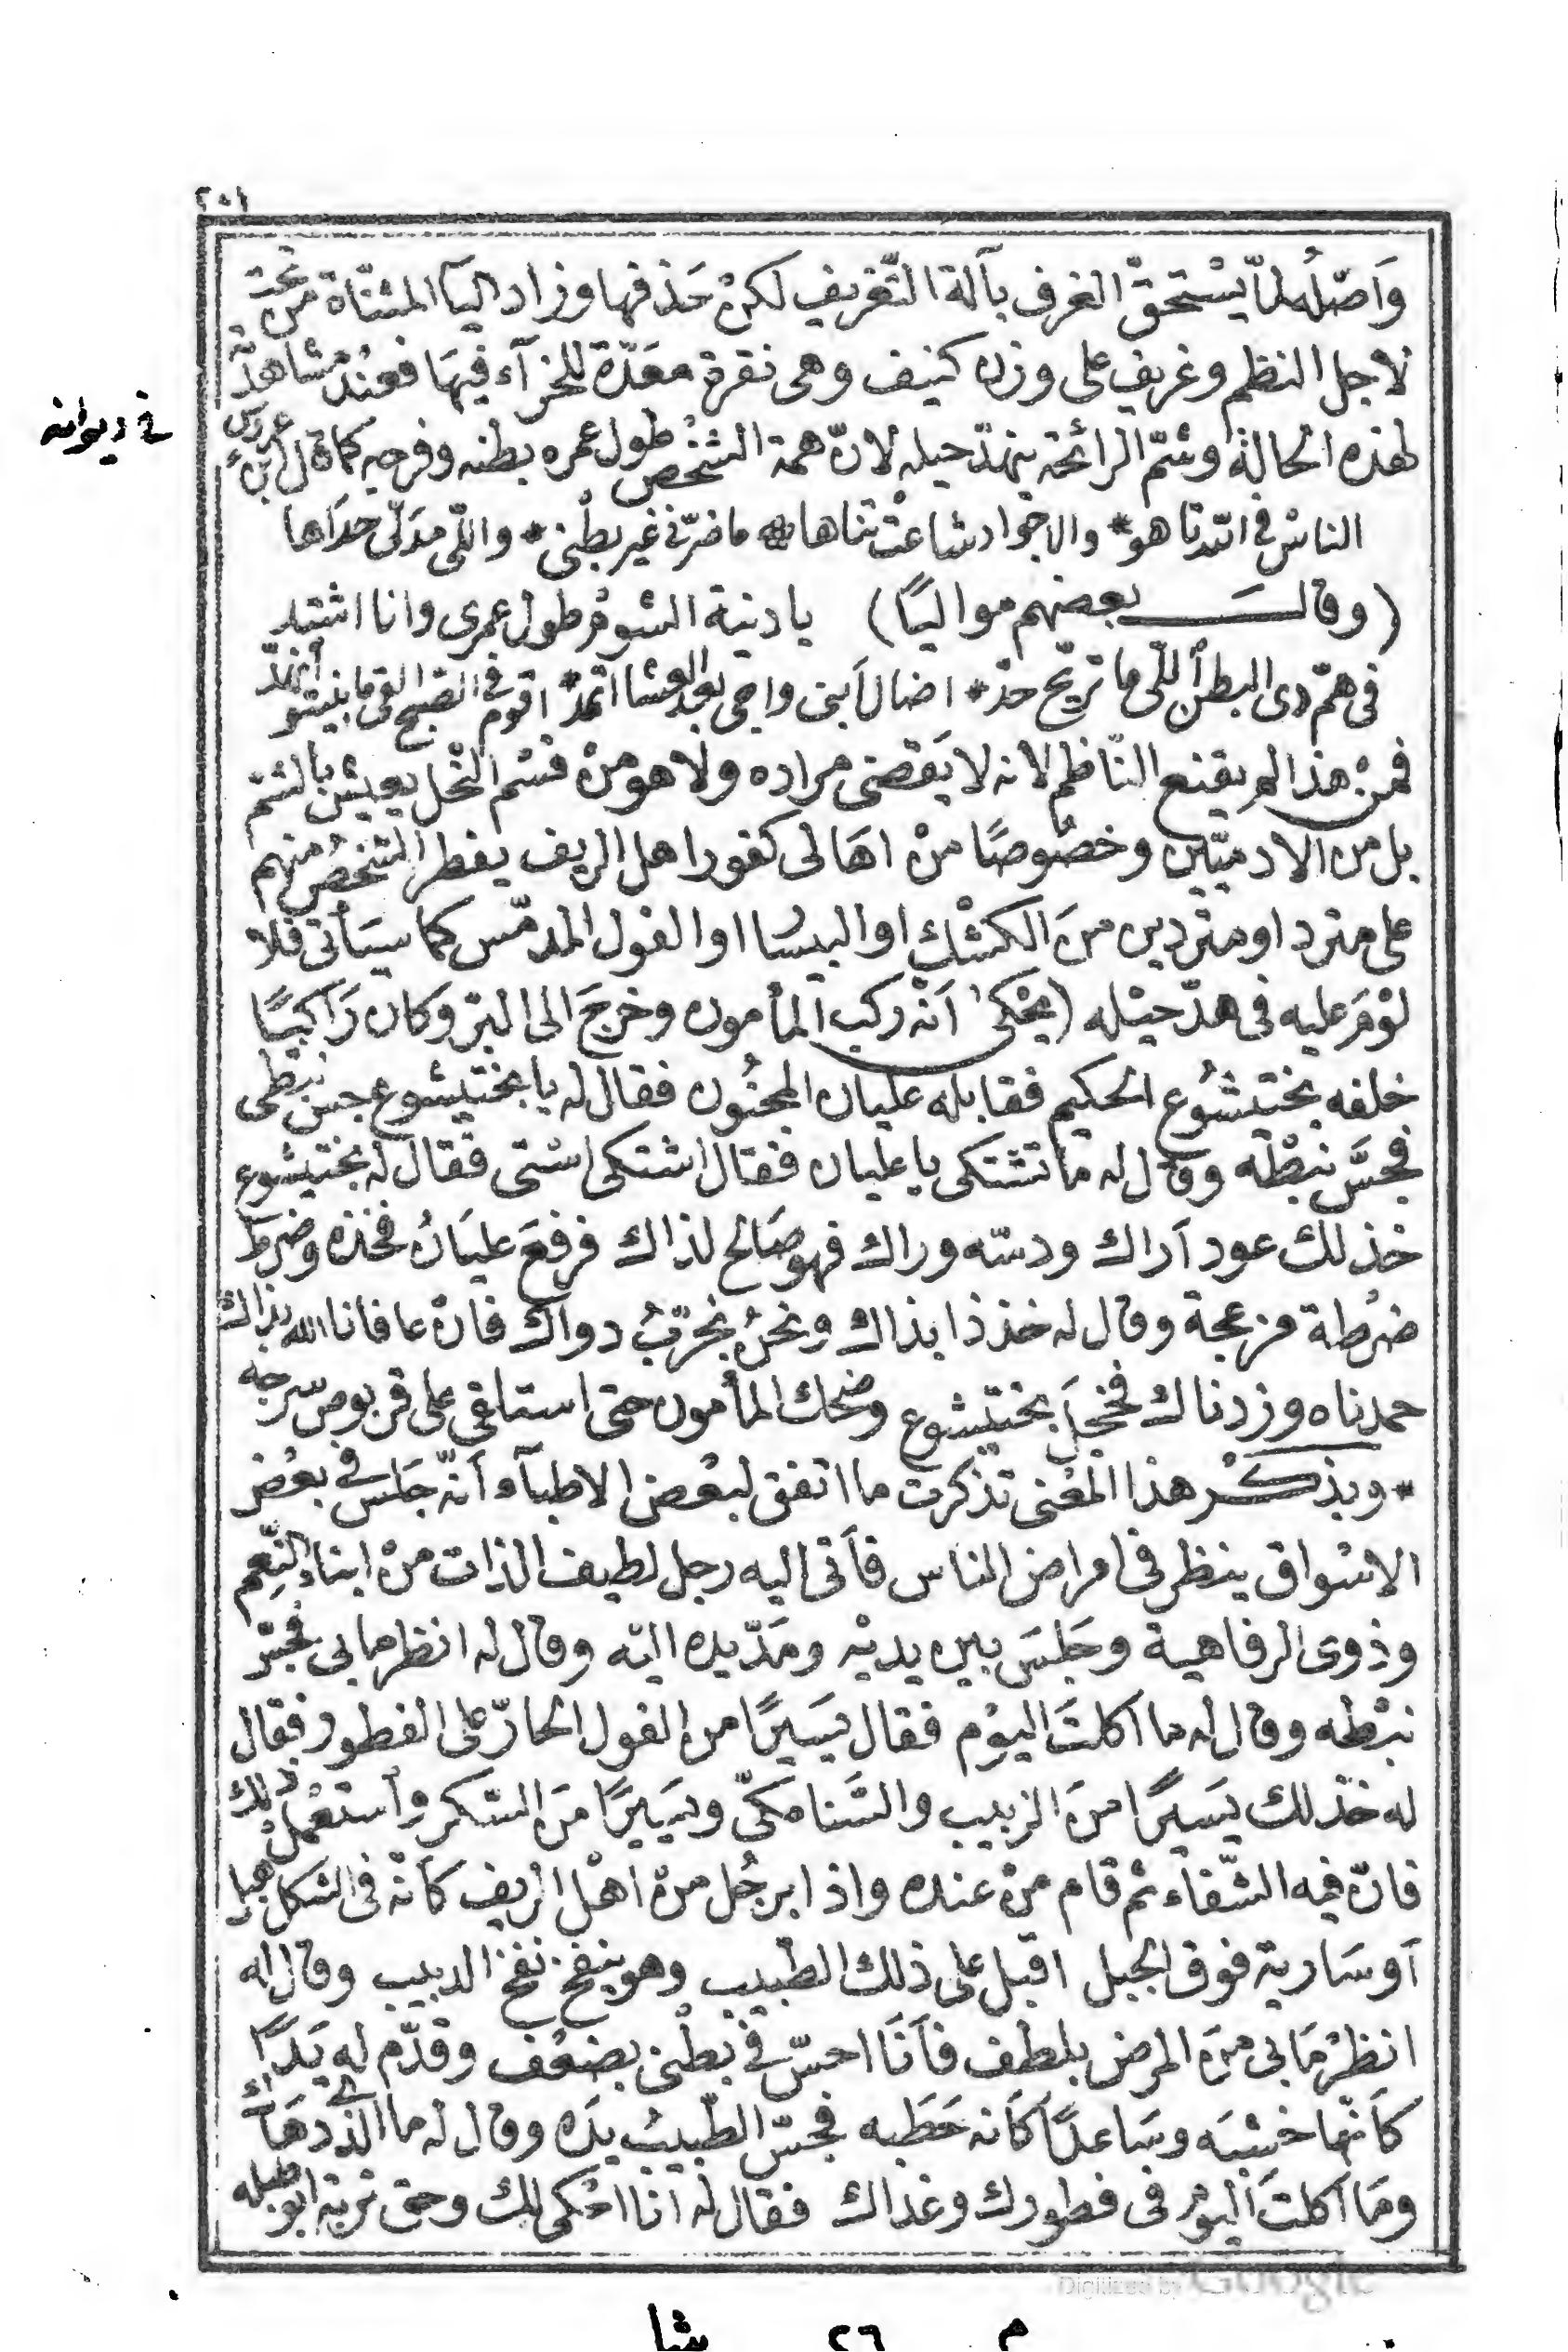 ٢٠١
وَاَصْلُه لمّا يسْتحقّ الغرف بآلة التّغريف لكنْ حَذفها وزاد اليآ المثنّاة منْ تحت
لاجل النظم وغريف على وزن كنيف وهى نقرة معَدّة للخرآء فيهَا فعنْد مشاهدة
لهذه الحالة وشمّ الرائحة ينهدّ حيله لانّ همة الشخص طول عمره بطنه وفرجه كما قال ابن عروس
فى ديوانه
الناسْ فى الدّنا هو * والاجواد شاعتْ ثناها * ما ضرّنى غير بطْنى * واللّى مدَلّى حدَاها
(وقالَ بعضهم مواليًا) يا دنية الشوم طول عمرى وانا اشتد
فى همّ دى البطن اللّى ما تريّح حدّ * اضال ابنى واجى بعد العشا اتمدّ اقوم فى الصبح القى ما بنيتو انهدّ
فمنْ هذا لم يقنع النّاظم لانه لا يَقضى مراده ولا هو منْ قسْم النّحْل يعيش بالشمّ
بل من الادميّين وخصُوصًا منْ اهَالى كفور اهل الريف يفطر الشخصُ منهم
على مترد او متردين منَ الكشْك او البيسار او الفول المدمّس كما سيَأتى فلا
لوْمَ عليه فى هدّ حيْله (يحْكى) اَنّه ركب المأمون وخرجَ الى البرّ وكان رَاكبًا
خلفه بختيشُوع الحكيم فقابله عليان المجنُون فقال له يا بختيشوع جسّ نبْطى
فجسَّ نبْطه وقال له ما تشتكى يا عليان فقال اشتكى اسْتى فقال له بختيشوع
خذ لك عود اَراك ودسّه وراك فهو صَالح لذاك فرفعَ عليَانُ فخذه وضرطَ
ضرْطة مزعجة وقال له خذ ذا بذاك ونحنُ نجرّبُ دواك فانْ عافانا الله بذاك
حمدناه وزدناك فخجلَ بختيشوع وضحك المأمون حتى استلقى على قربوص سرجه
* وبذكْر هذا المعْنى تذكرت ما اتفق لبعْض الاطبآء اَنّه جلَس فى بعْض
الاسْواق ينظر فى امراض الناس فأتى اليه رجل لطيف الذات منْ ابناء النِّعم
وذوى الرفاهية وجَلسَ بين يديْه ومَدّ يده اليْه وقال له انظر ما بى فجسّ
نبْطه وقال له ما اكلتَ اليوْم فقال يسَيرًا من الفول الحارّ على الفطور فقال
له خذ لك يسَيرًا منَ الزبيب والسَّنا مكىّ ويسَيرًا منَ السّكر واستعْملْ ذلك
فانّ فيه الشّفاء ثم قام منْ عنده واذا برجُل منْ اهْل الريف كاَنّه فى الشكل هبل
اَو سَارية فوق الجبل اقبل على ذلك الطّبيب وهو ينفخ نفخ الدبيب وقال له
انظرْ مَا بى منَ المرض بلطف فاَنَا احسّ فى بطْنى بضعْف وقدّم له يَدًا
كاَنّها خشبَه وسَاعدًا كاَنه حَطَبه فجسّ الطّبيبُ يدَه وقال له ما الّذى دهَاك
ومَا اكلتَ اليوْم فى فطورك وغداك فقال له اَنا احْكى لك وحق تربة ابو طبله
Digitized by Google
م ٢٦ شا